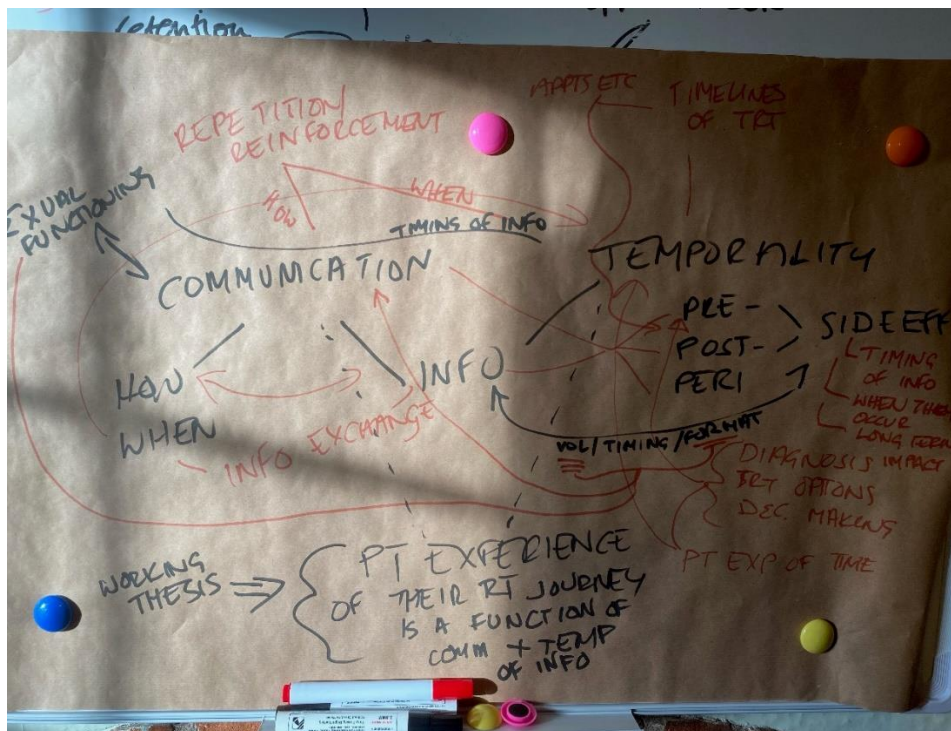 retention
APPTS ETC
TIMELINES
OF TRT
REPETITION/
REINFORCEMENT
HOW
WHEN
EXUAL
FUNCTIONING
TIMING OF INFO
COMMUNICATION
TEMPORALITY
PRE -
POST -
PERI
SIDE EFF
TIMING
OF INFO
WHEN THEY
OCCUR
LONG TERM
IMPACT
HOW
WHEN
INFO
INFO EXCHANGE
VOL/TIMING/FORMAT
DIAGNOSIS
TRT OPTONS
DEC. MAKING
PT EXP OF TIME
WORKING
THESIS
PT EXPERIENCE
OF THEIR RT JOURNEY
IS A FUNCTION OF
COMM + TEMP
OF INFO